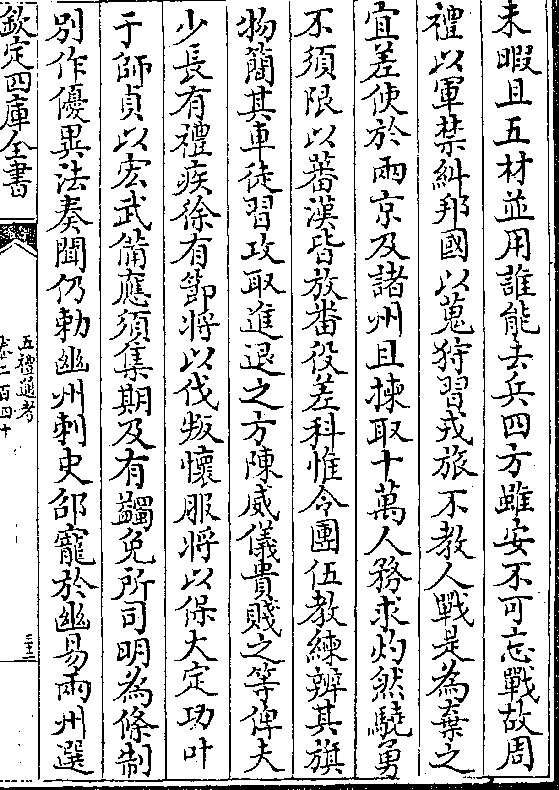 未暇且五材並用誰能去兵四方雖安不可忘戰故周
禮以軍禁糾邦國以蒐狩習戎旅不教人戰是為棄之
宜差使於兩京及諸州且揀取十萬人務求灼然驍勇
不須限以蕃漢皆放番役差科惟令團伍教練辨其旗
物簡其車徒習攻取進退之方陳威儀貴賤之等俾夫
少長有禮疾徐有節將以伐叛懷服將以保大定功叶
于師貞以宏武備應須集期及有蠲免所司明為條制
別作優異法奏聞仍勅幽州刺史邵寵於幽易兩州選
欽定四庫全書
五禮通考
卷二百四十
三三